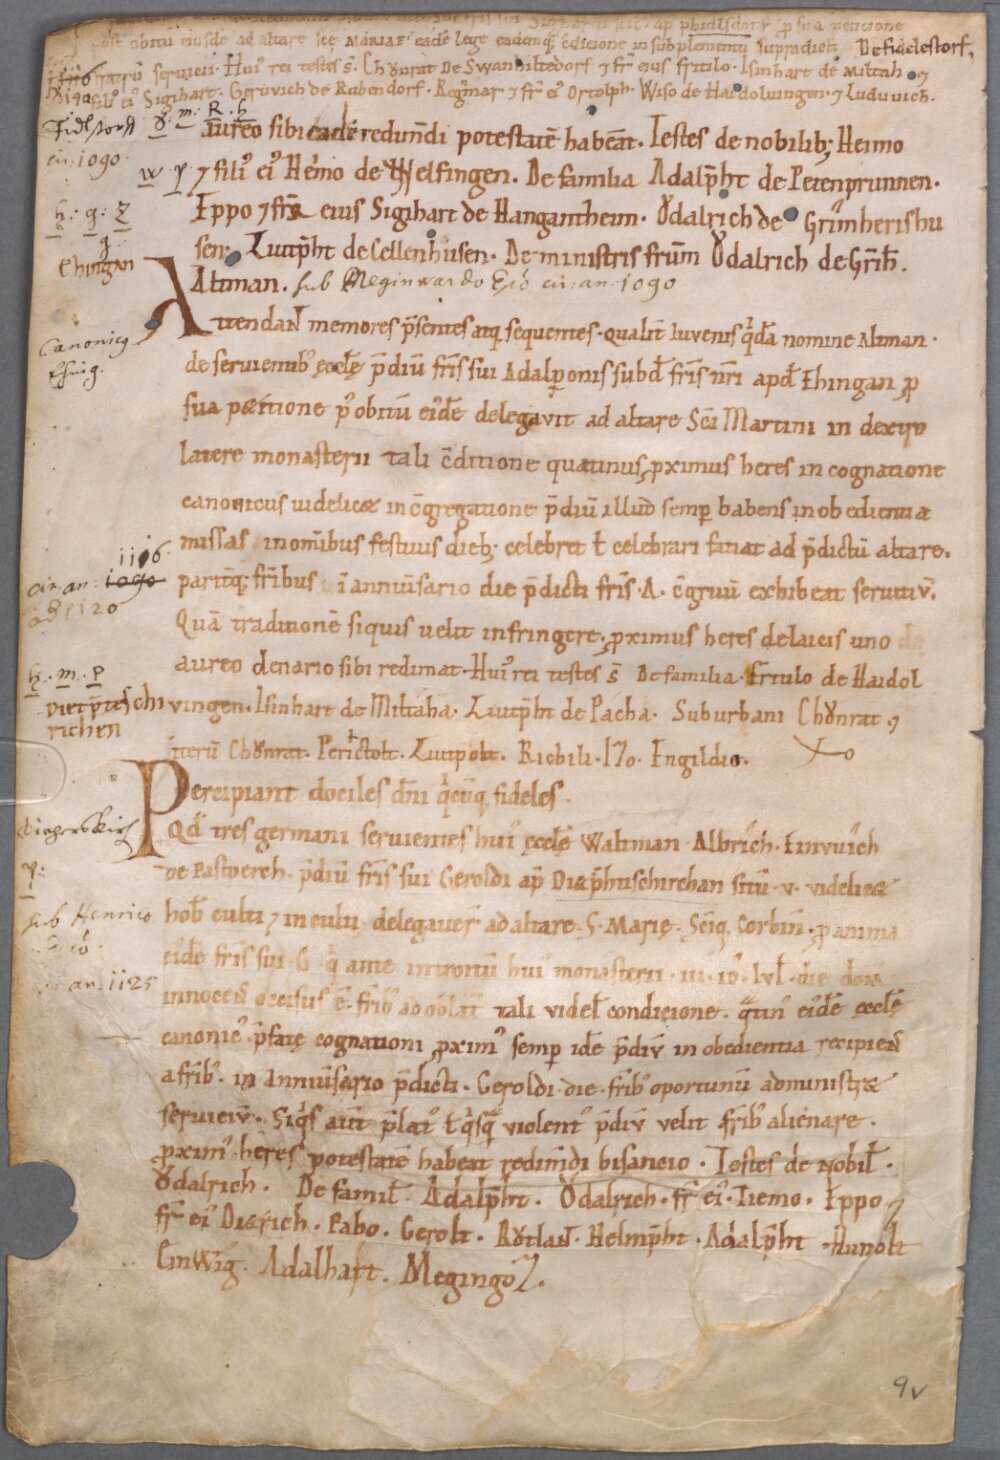 post obitū eiusdē ad altare scē MARIAE eadē lege eadēq; cōdicione in subplementū supradicti De fidelestorf.
fratrū servicii. Hui' rei testes s̄. Chŏnrat De Swanhiltedorf ⁊ fr̄ eius fritilo. Isinhart de Mittah ⁊
filii' ei' Sigihart. Gerŭvich de Rubendorf. Regīmar ⁊ fr̄ ei' Ortolph. Wiso de Haidolvingen. ⁊ Luduuich.
aureo sibi eadē redimēdi potestatē habeāt. Testes de nobilib; Heimo
⁊ fili' ei' Hemo de Welfingen. De familia Adalp̄ht de Petenprunnen.
Eppo ⁊ frr̄ eius Sigihart de Hangantheim. Ŏdalrich de Grīmherishu
sen. Lutp̄ht de Cellenhusen. De ministris frūm Ŏdalrich de Grīh̄.
Altman. sub Meginwardo Epō cir: an: 1090
Attendan̄ memores p̄sentes atq; sequentes. qualit̄ Iuvenis q'dā nomine Altman.
de servientib' ęcclę p̄diū fr̄is sui Adalperonis subd̄ fr̄is n̄ri apd̄ Ehingan p̄
sua petitione p' obitū ei'dē delegavit ad altare Sc̄i Martini in dextro
latere monasterii tali c̄ditione quatinus p̱ximus heres in cognatione
canonicus videlicet in c̄gregatione p̄diū illud semp̱ habens in obedientia
missas in omībus festivis dieb; celebret t̄ celebrari faciat ad p̄dictū altare.
parit̄q; fr̄ibus in anniūsario die p̄dicti fr̄is .A. c̄gruū exhibeat servitiū.
Quā traditionē siquis velit infringere, p̱ximus heres de laicis uno
aureo denario sibi redimat. Hui' rei testes s̄ De familia. fritulo de Haidol
vingen. Isinhart de Mittaha. Liutp̄ht de Pacha. Suburbani Chŏnrat ⁊
iterū Chŏnrat. Perictolt. Liutpolt. Richili. Izo. Engildio.
Percipiant dociles dn̄i q'cūq; fideles.
Qd̄ tres germani servientes hui' ęcclę̄ Waltman. Albrich. Einvvich
de Pastperch. p̄diū fr̄is sui Geroldi ap̄ Dietp̄htischirchan sitū .v. videlicet
hob̄ culti ⁊ inculti delegaver̄ ad altare .S. Marię. Sc̄iq; Corbin̄. p̱ anima
ei'dē fr̄is sui .G. q' ante introitū hui' monasterii .iii. id' Iul̄. die dom̄
innocen̄ occisus ē. fr̄ib' ad oblat̄ tali videl̄ condicione. q̄tin' ei'dē ęcclę̄
canonic' p̄fatę cognationi p̱xim' semp̱ idē p̄diū in obedientia recipien̄
a fr̄ib'. in anniūsario p̄dicti. Geroldi die. fr̄ib' oportunū administret
serviciū. Siq's aut̄ p̄lat' t̄ q'sq̄ violent' p̄diū velit fr̄ib' alienare.
p̱xim' heres potestatē habeat redimēdi bisancio. Testes de nobil̄.
Ŏdalrich. De famil̄. Adalp̄ht. Ŏdalrich. fr̄ ei'. Tiemo. Eppo ⁊
fr̄ ei' Dietrich. Pabo. Gerolt. Rŏtlan̄. Helmp̄ht. Adalp̄ht. Hunolt
Einwig. Adalhaft. Megingoz.
Fidlstorff
cir. 1090.
Ehingan
Canonicg
Ehing.
cir. an: 1090 1116
ad 1120
h. m. p
Dietp̄htischi
richen
Dieperskirch
sub Henrico
an. 1125
9v